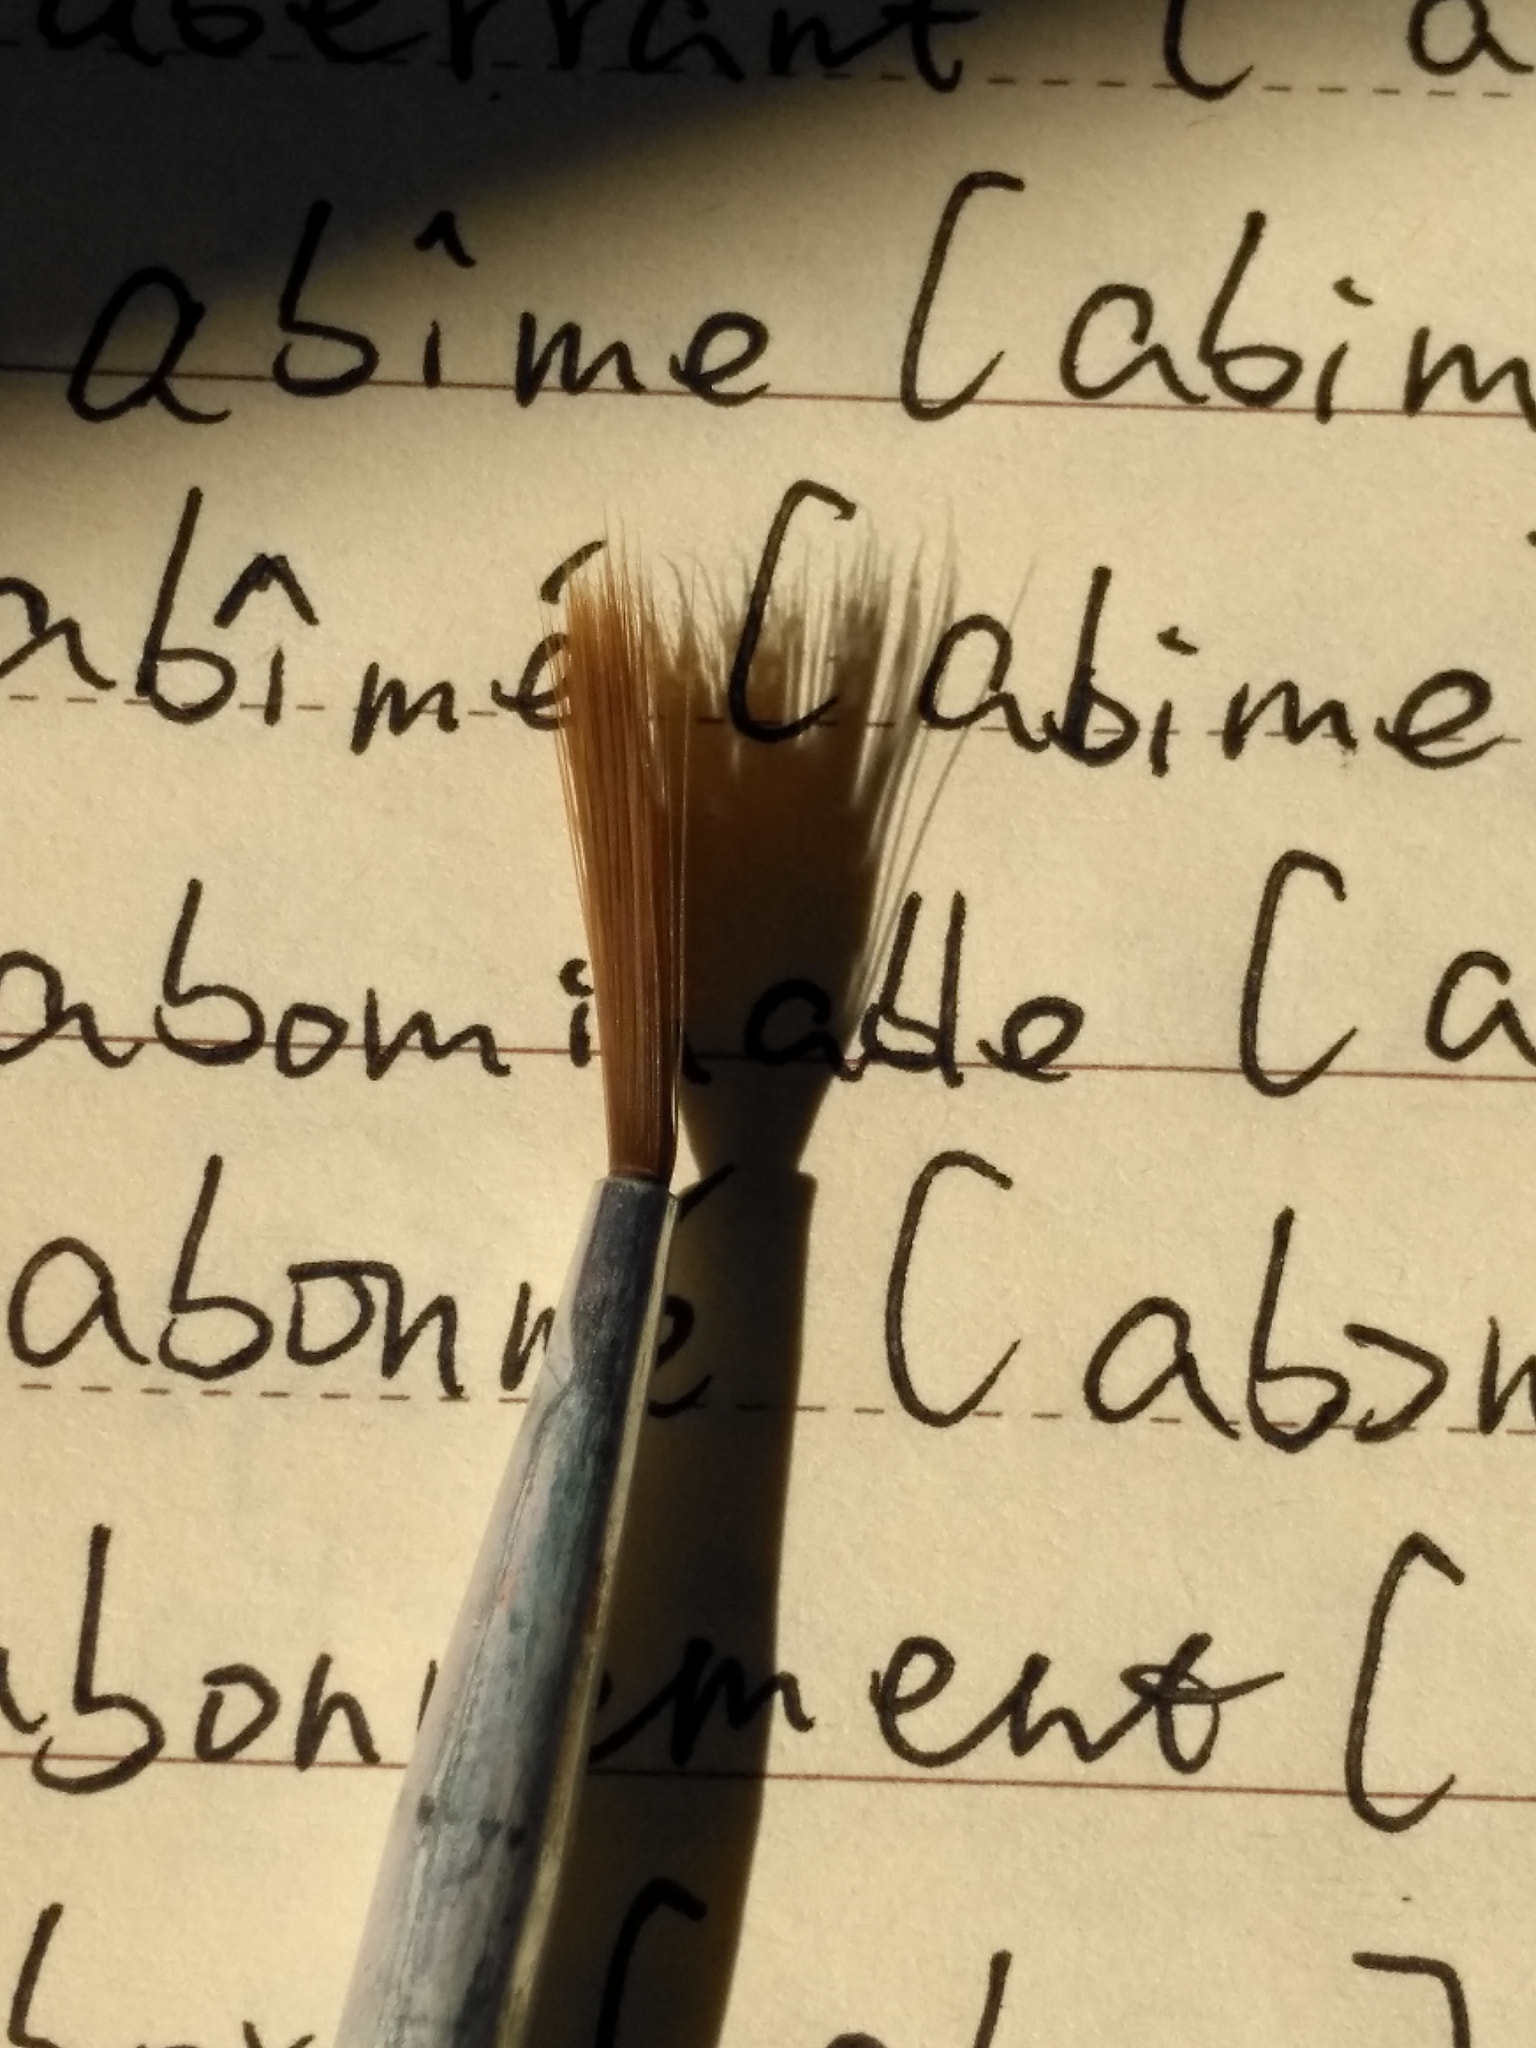 aberrant [a
abîme [abim
abîmé [abime
abominable [a
abonné [abɔn
abonnement [